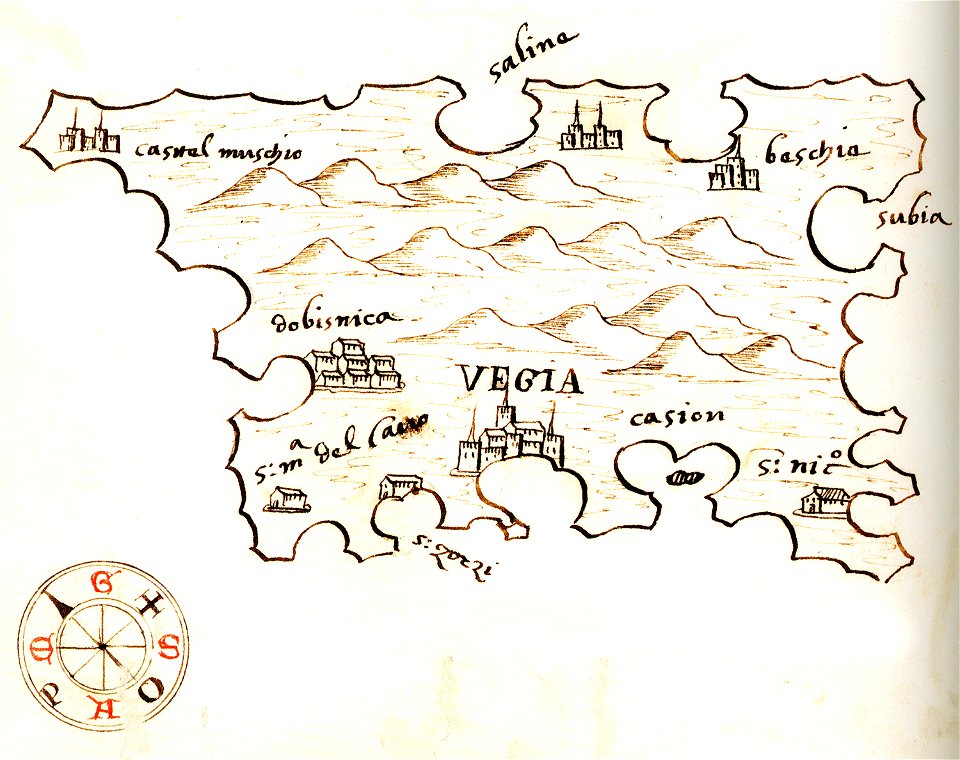 saline
castel muschio
beschia
subia
dobisnica
VEGIA
casion
s: mᵃ del
s: nicº
s: zorzi
G
S
O
A
P